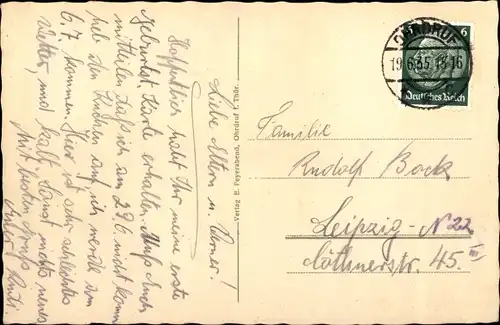 Liebe Eltern u. Werner!
Hoffentlich habt Ihr meine erste
Geburtst. Karte erhalten. Muß Euch
mitteilen daß ich am 29.6. nicht komme
hebt den Kuchen auf, ich werde am
6.7. kommen. Hier ist sehr schlechtes
Wetter, und kalt, sonst nichts neues
Mit besten Gruß
Euer
Verlag E. Feyerabend, Ohrdruf i. Thür.
OHRDRUF
19.6.35.15-16
6
Deutsches Reich
Familie
Rudolf Bock
Leipzig - N 22
Cöthnerstr. 45. III